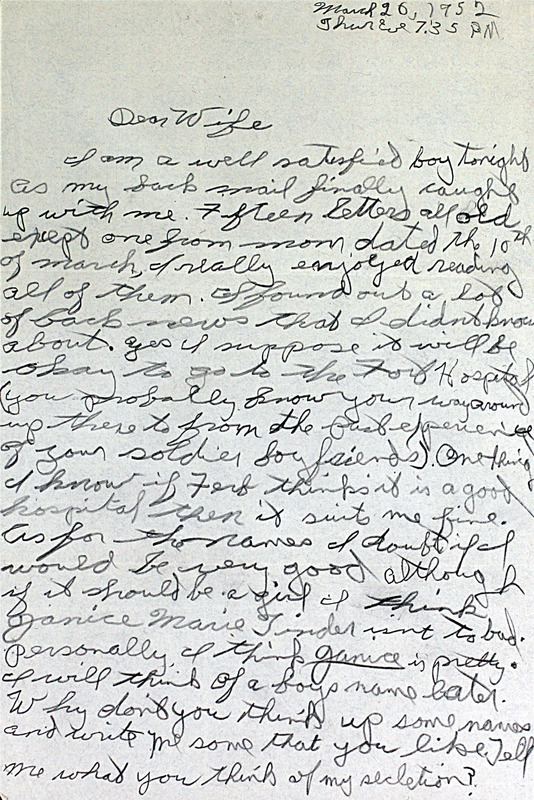 March 26, 1952
Thur Eve 7.35 PM
Dear Wife
I am a well satesfied boy tonight
as my back mail finally caught
up with me. Fifteen letters all old
exept one from mom dated the 10th
of march, I really enjoyed reading
all of them. I found out a lot
of back news that I didnt know
about. yes I suppose it will be
okay to go to the Fort Hospital
(you probably know your way around
up there to from the past experience
of your soldier boy friends). One thing
I know if Ferb thinks it is a good
hospital then it suits me fine.
As for the names I doubt if I
would be very good although
if it should be a girl I think
Janice Marie Tinder isnt to bad.
Personally I think Janice is pretty.
I will think of a boys name later.
Why dont you think up some names
and write me some that you like. Tell
me what you think of my secletion?